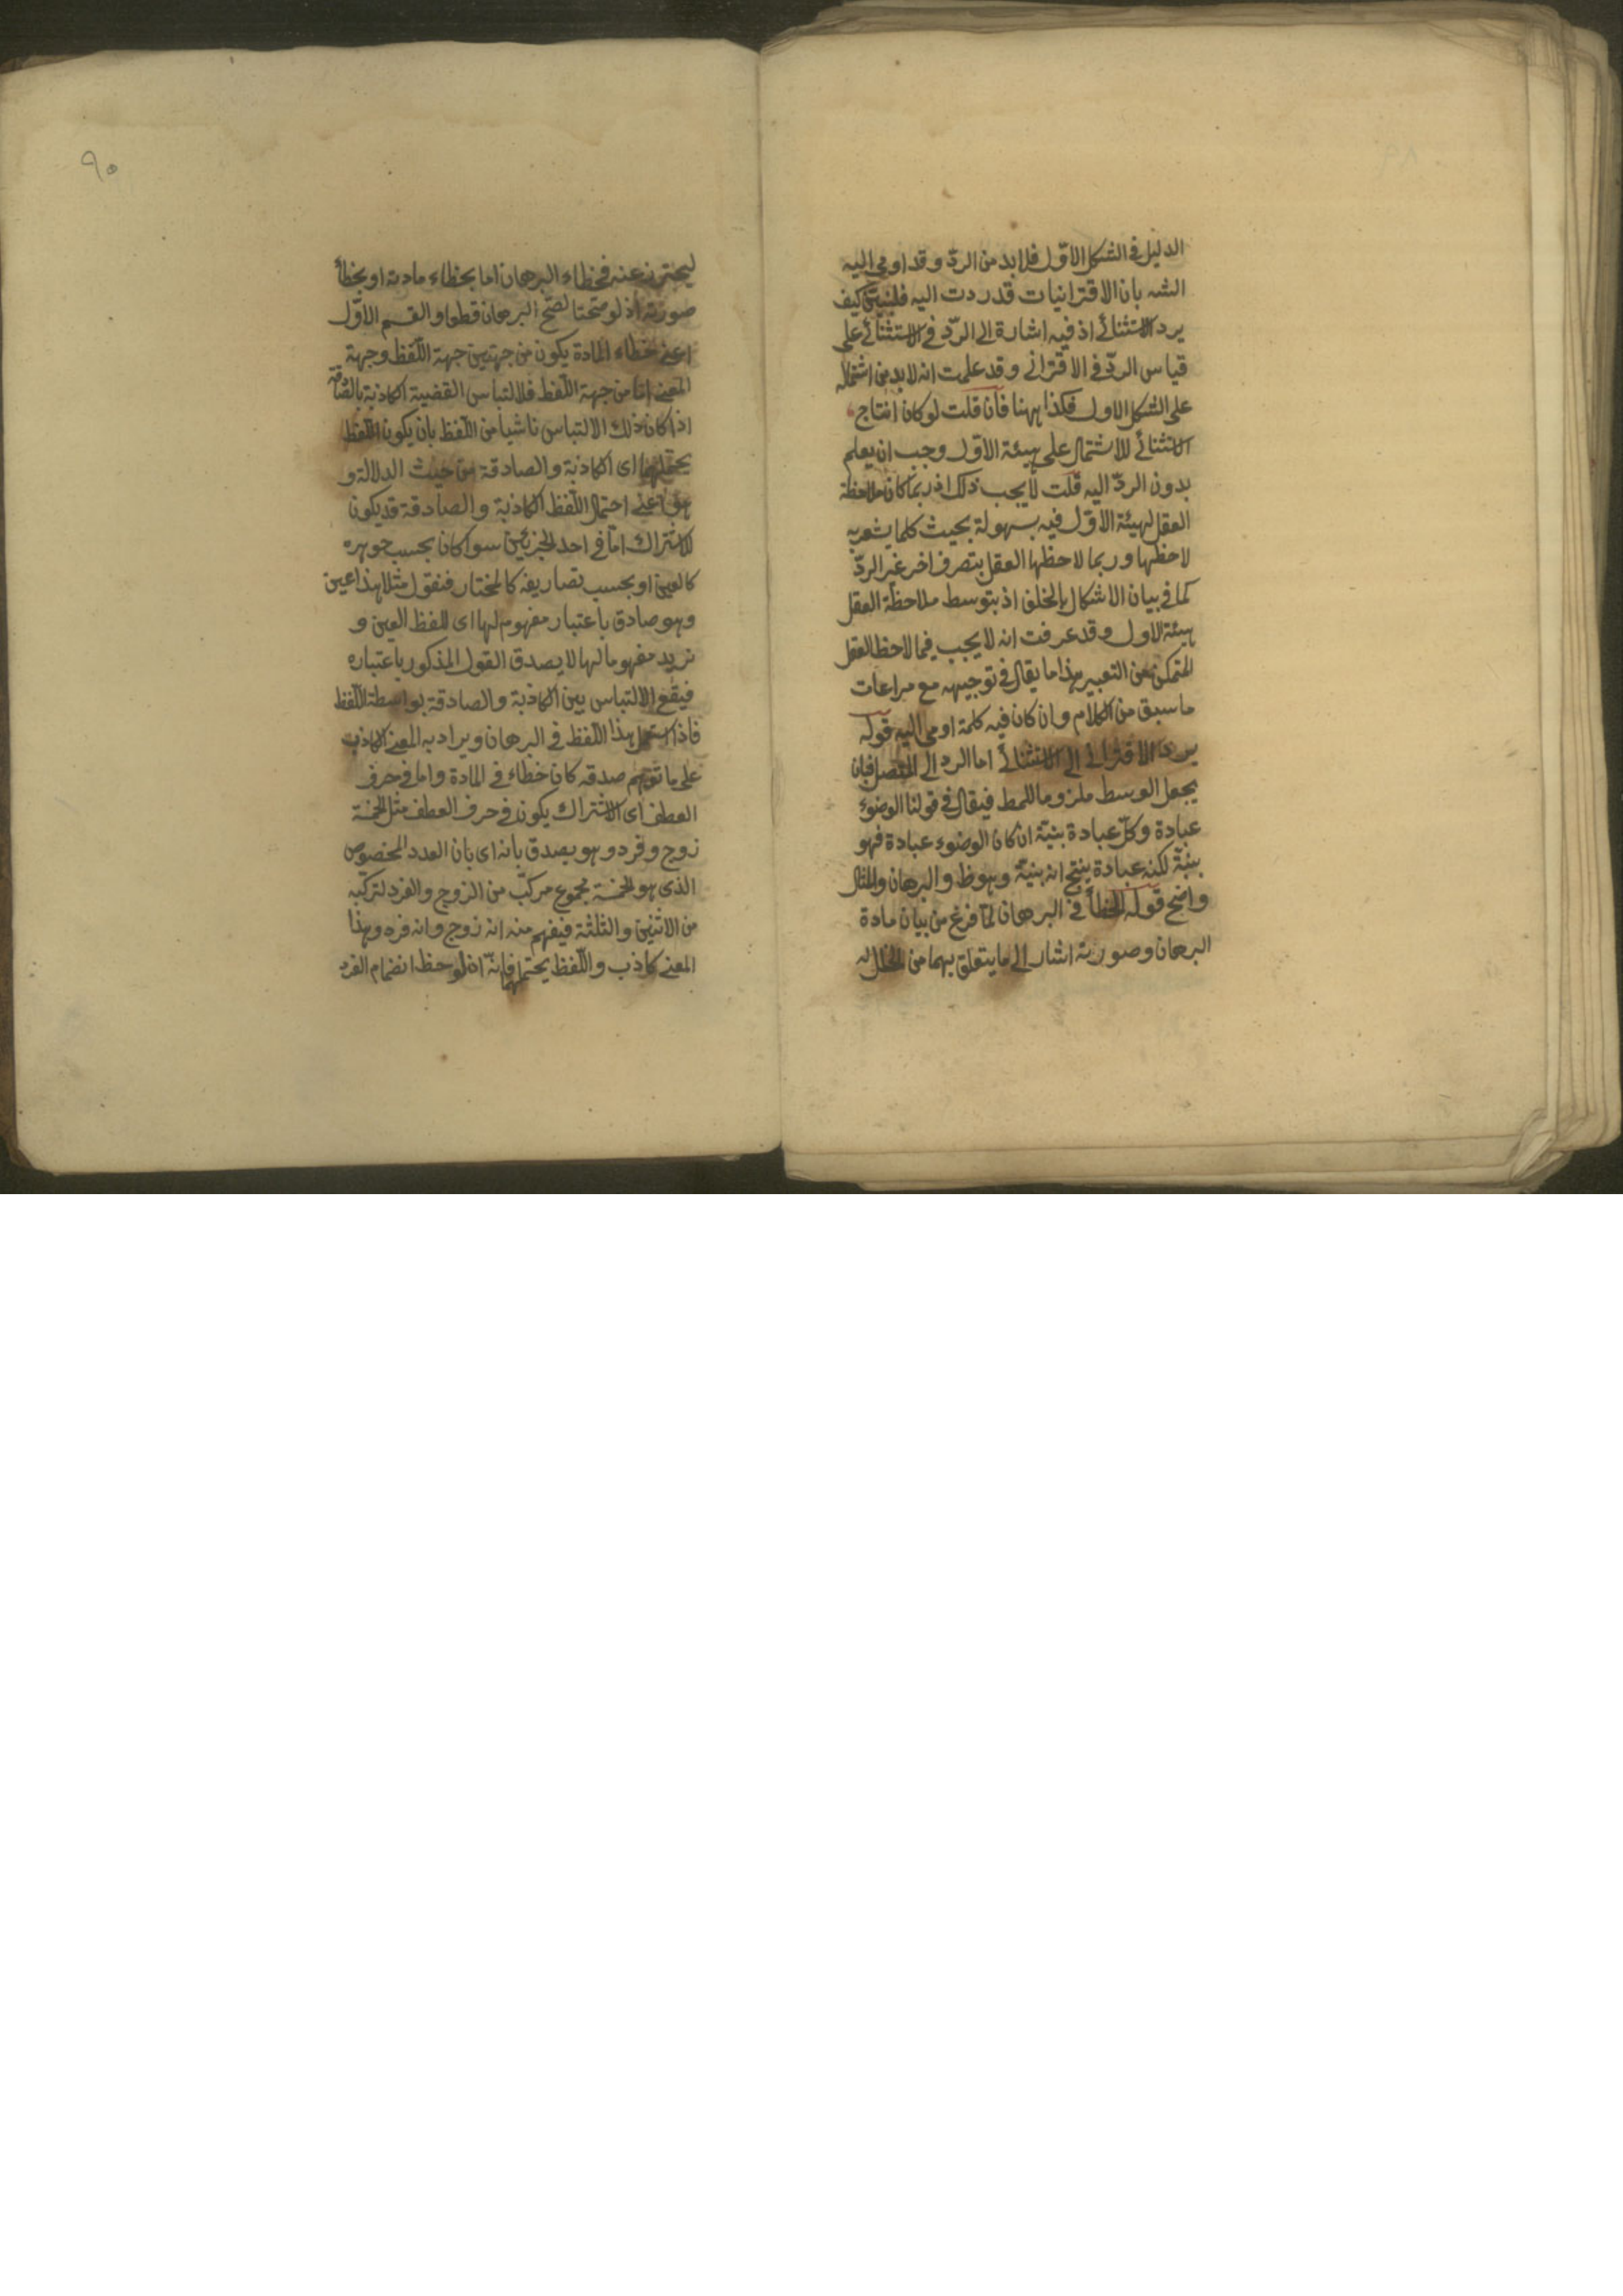 الدليل في الشكل الاوّل فلا بد من الردّ وقد اومى اليه
الشه بان الاقترانيات قدردت اليه فلنبيّن كيف
يرد الاستثنائے اذ فيه اشارة الى الردّ في الاستثنائے على
قياس الردّ في الاقترانى وقد علمت انه لابد من اشتماله
على الشكل الاول فكذا ههنا فان قلت لو كان انتاج
الاستثنائے للاشتمال على هيئة الاول وجب ان يعلم
بدون الردّ اليه قلت لا يجب ذلك اذ ربما كان ملاحظة
العقل لهيئة الاوّل فيه بسهولة بحيث كلما يشعر به
لاحظها وربما لاحظها العقل بتصرف اخر غير الردّ
كما في بيان الاشكال بالخلف اذ بتوسط ملاحظة العقل
هيئة الاول وقد عرفت انه لا يجب فيما لاحظ العقل
التمكن من التعبير هذا ما يقال في توجيهه مع مراعات
ما سبق من الكلام وان كان فيه كلمة اومى اليه قوله
يرد الاقترانے الى الاستثنائے اما الرد الى المتصل فبان
يجعل الوسط ملزوما للمط فيقال في قولنا الوضوء
عبادة وكلّ عبادة بنيّة ان كان الوضوء عبادة فهو
بنيّة لكنه عبادة ينتج انه بنيّة وهو ظ والبرهان والمثال
واضح قوله الخطأ في البرهان لمّا فرغ من بيان مادة
البرهان وصورته اشار الى ما يتعلق بهما من الخلل
٩٠
ليحترز عنه فخطاء البرهان اما بخطاء مادته او بخطأ
صورته اذ لو صحّتا لصّح البرهان قطعا والقسم الاوّل
اعنے خطاء المادة يكون من جهتين جهة اللّفظ وجهة
المعنے امّا من جهة اللّفظ فلالتباس القضية الكاذبة بالصّادقة
اذا كان ذلك الالتباس ناشيا من اللّفظ بان يكون اللّفظ
يحتملهما اى الكاذبة والصادقة من حيث الدلالة و
هو اعنے احتمال اللّفظ الكاذبة والصادقة قد يكون
للاشتراك امّا في احد الجزئين سوا كان بحسب جوهره
كالعين او بحسب تصاريفه كالمختار فنقول مثلا هذا عين
وهو صادق باعتبار مفهوم لها اى للفظ العين و
نريد مفهوما لها لا يصدق القول المذكور باعتباره
فيقع الالتباس بين الكاذبة والصادقة بواسطة اللّفظ
فاذا استعمل هذا اللّفظ في البرهان ويراد به المعنے الكاذب
على ما توهم صدقه كان خطاء في المادة واما في حرف
العطف اى الاشتراك يكون في حرف العطف مثل الخمسة
زوج وفرد وهو يصدق بانه اى بان العدد المخصوص
الذى هو الخمسة مجموع مركّب من الزوج والفرد لتركّبه
من الاثنين والثلثة فيفهم منه انه زوج وانه فرد وهذا
المعنے كاذب واللّفظ يحتملهما فانّه اذ لوحظ انضمام الفرد